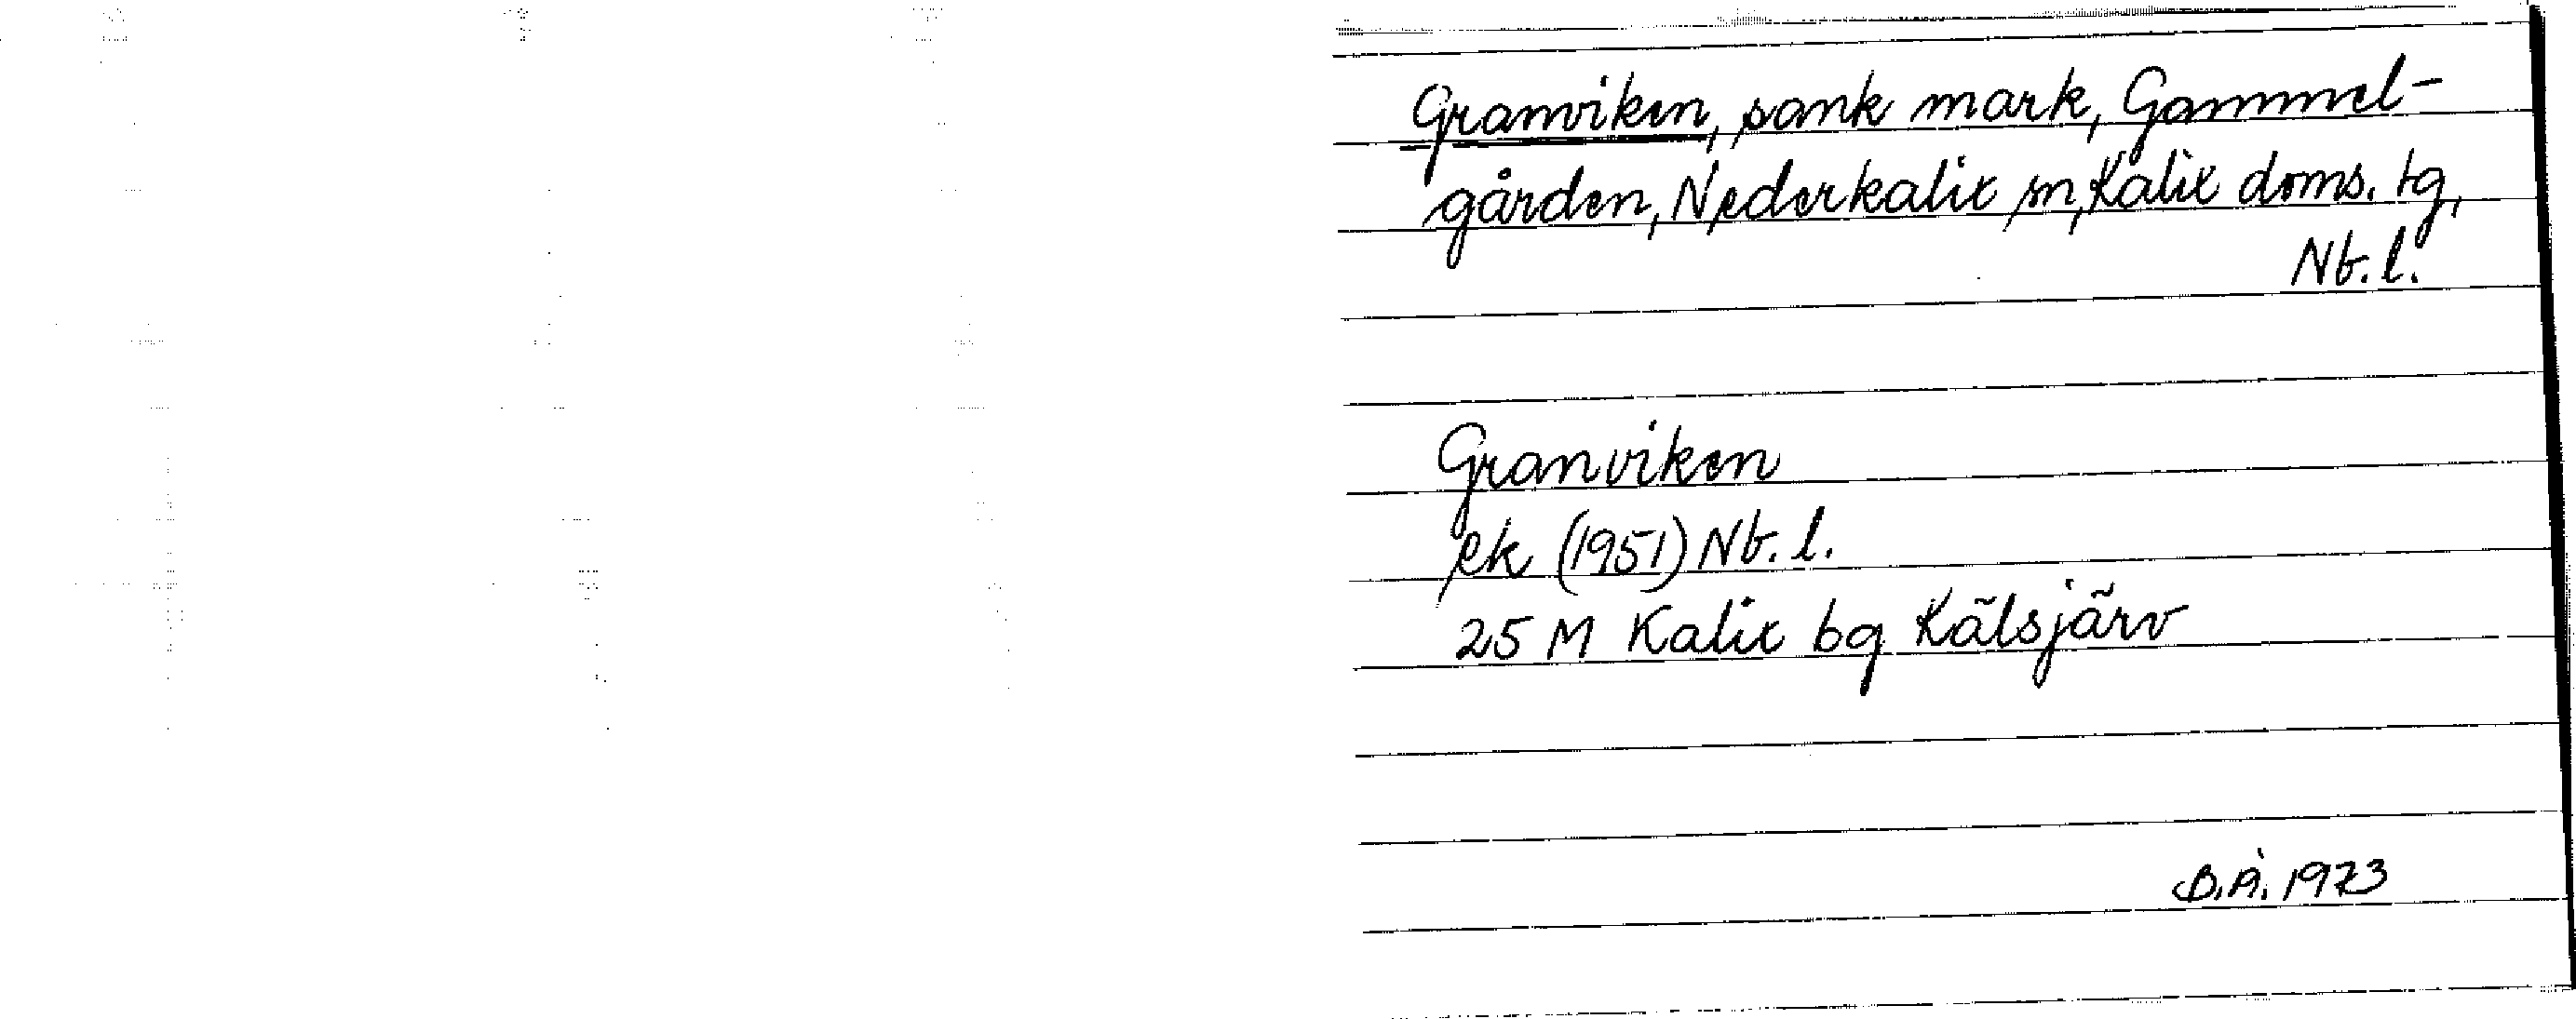 Granviken, sank mark, Gammel-
gården, Nederkalix sn, Kalix doms. tg,
Nb. l.
Granviken
ek (1951) Nb. l.
25 M Kalix bg Kälsjärv
B.Å. 1973